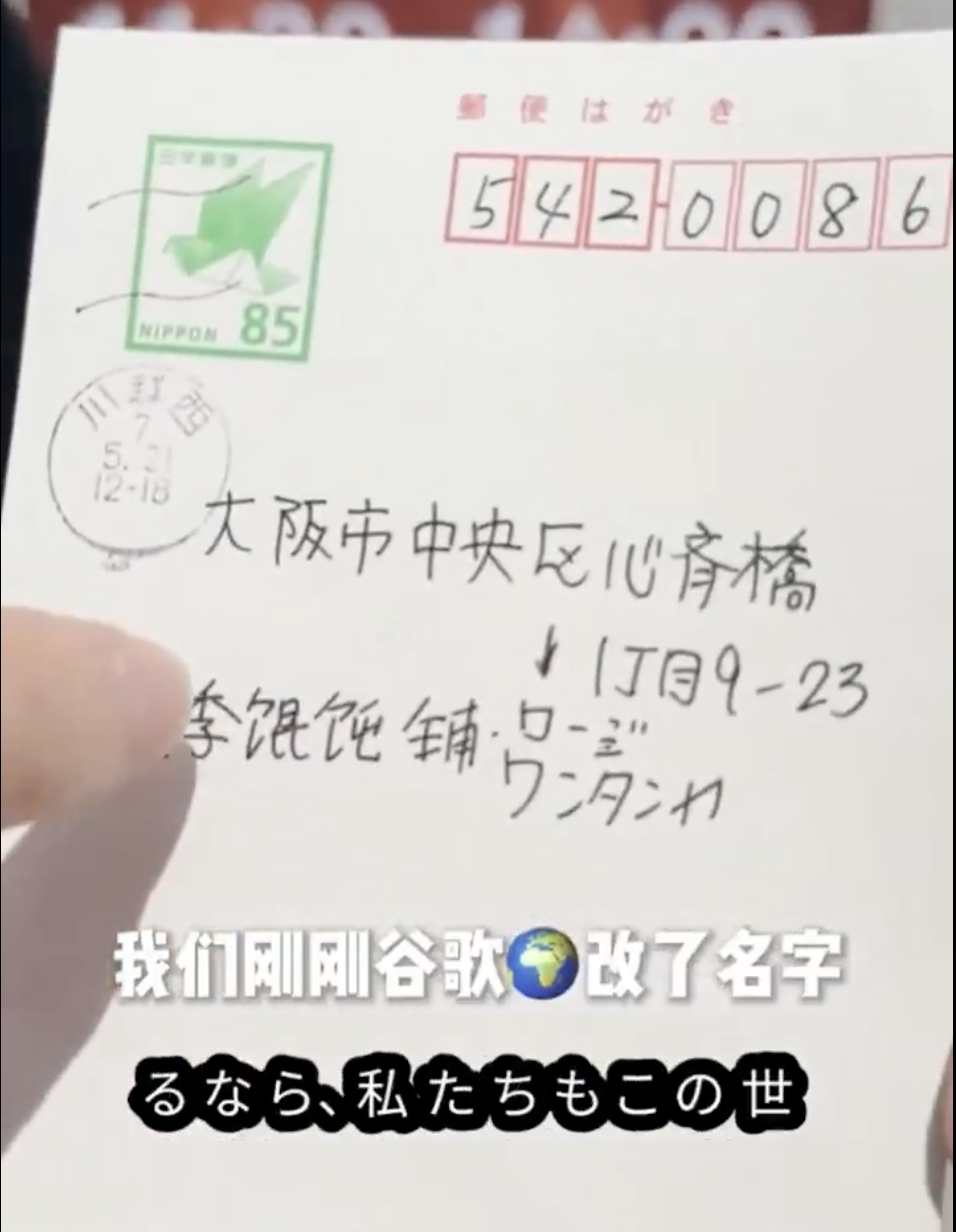 郵便はがき
5420086
日本郵便
NIPPON 85
西淀川
7
5.21
12-18
大阪市中央区心斉橋
1丁目9-23
李馄饨铺・ロージ
ワンタンヤ
我们刚刚谷歌🌍改了名字
るなら、私たちもこの世